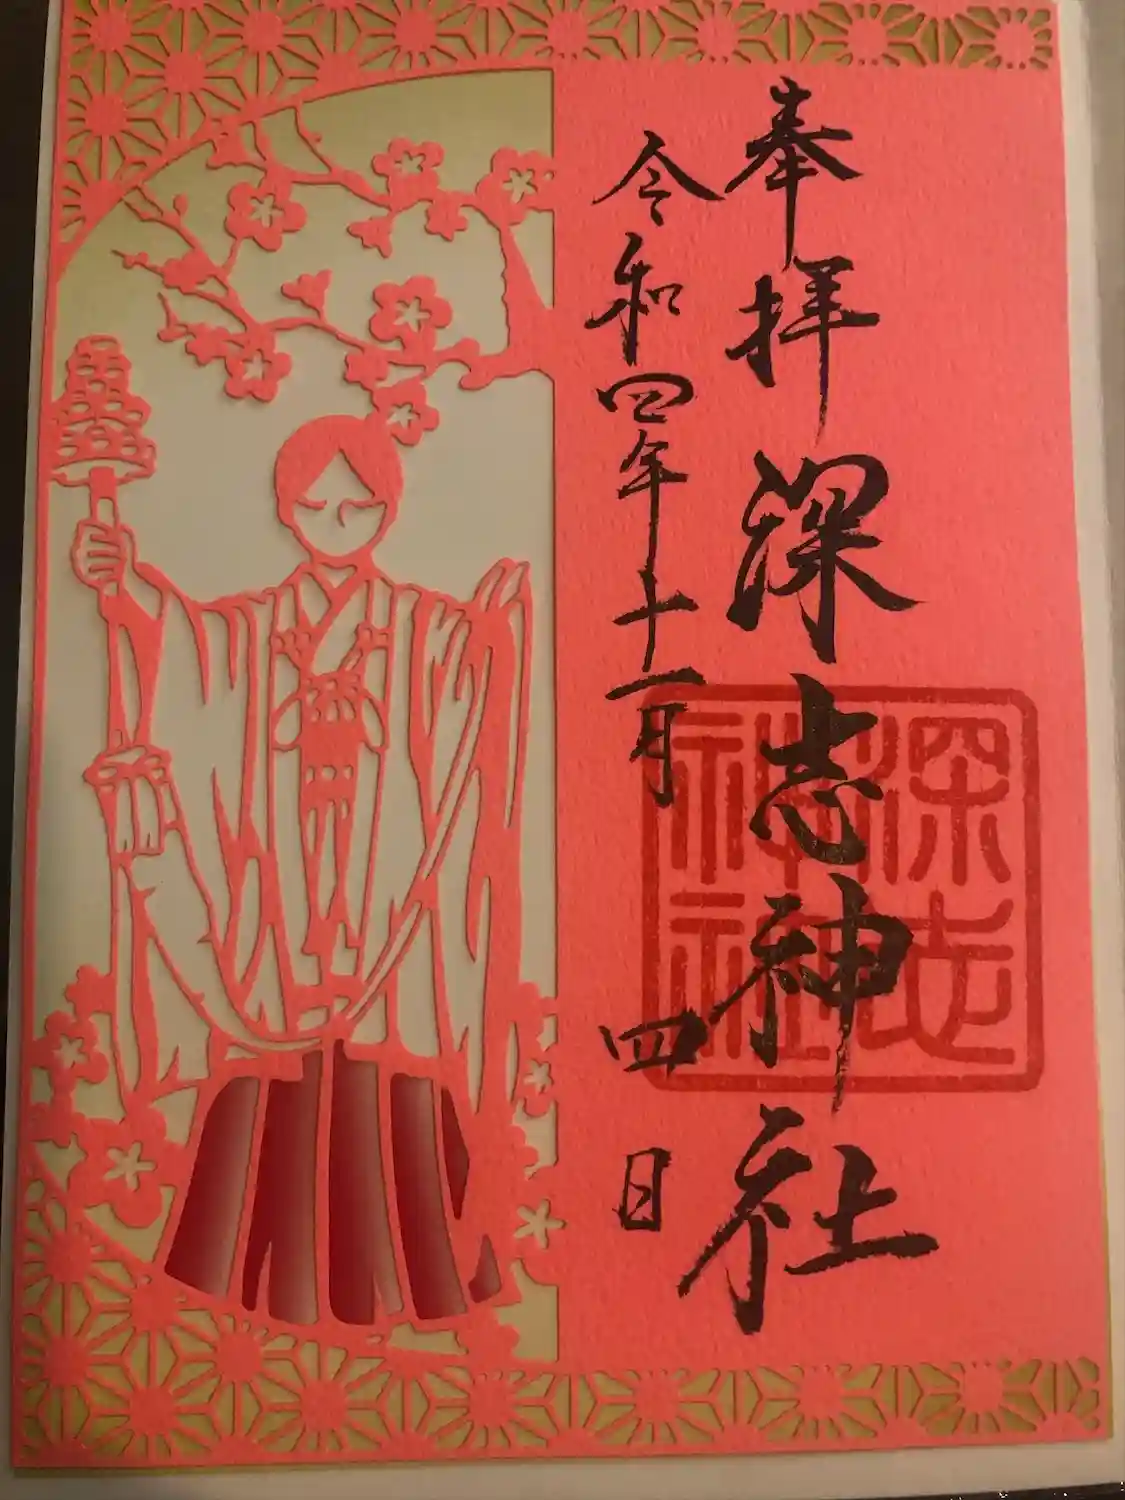 奉拝深志神社
令和四年十一月四日
深志神社